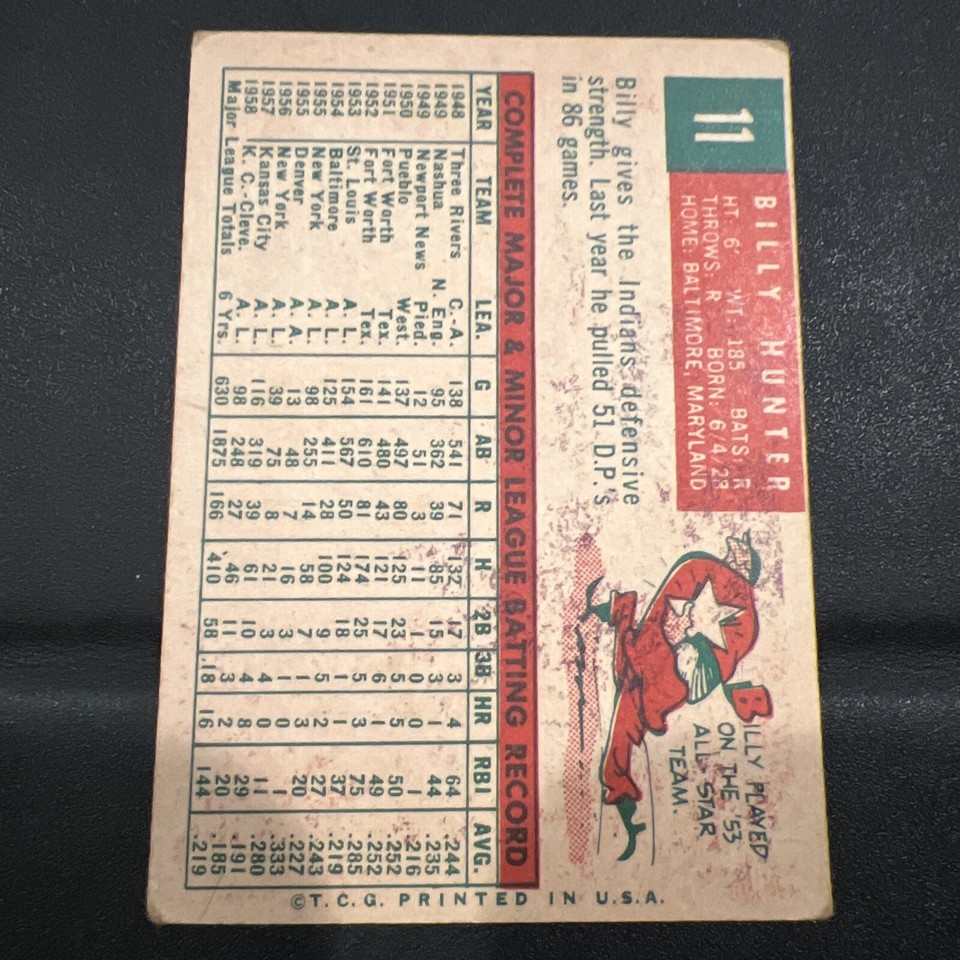 11
BILLY HUNTER
HT: 6' WT: 185 BATS: R
THROWS: R BORN: 6/4/28
HOME: BALTIMORE, MARYLAND
Billy gives the Indians defensive
strength. Last year he pulled 51 D.P.'s
in 86 games.
BILLY PLAYED
ON THE '53
ALL STAR
TEAM.
COMPLETE MAJOR & MINOR LEAGUE BATTING RECORD
YEAR TEAM LEA. G AB R H 2B 3B HR RBI AVG.
1948 Three Rivers C.-A. 138 541 71 132 17 3 4 64 .244
1949 Nashua N. Eng. 95 362 39 85 15 3 1 44 .235
1949 Newport News Pied. 12 51 3 11 1 0 0 1 .216
1950 Pueblo West. 137 497 80 125 23 5 5 50 .252
1951 Fort Worth Tex. 141 480 43 121 17 6 1 49 .252
1952 Fort Worth Tex. 161 610 81 174 25 5 3 75 .285
1953 St. Louis A. L. 154 567 50 124 18 1 1 37 .219
1954 Baltimore A. L. 125 411 28 100 9 5 2 27 .243
1955 New York A. L. 98 255 14 58 7 1 3 20 .227
1955 Denver A. A. 13 48 7 16 3 1 0 1 .333
1956 New York A. L. 39 75 8 21 3 4 0 11 .280
1957 Kansas City A. L. 116 319 39 61 10 4 8 29 .191
1958 K. C.-Cleve. A. L. 98 248 27 46 11 3 2 20 .185
Major League Totals 6 Yrs. 630 1875 166 410 58 18 16 144 .219
©T.C.G. PRINTED IN U.S.A.